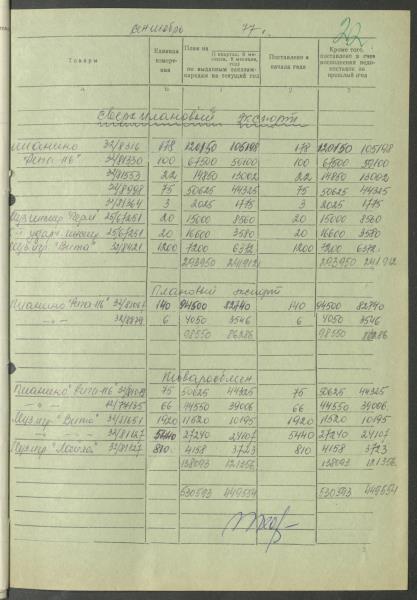 сентябрь 77 г.
22
Товары
Единица измерения
План на
II квартал, 6 месяцев, 9 месяцев, год
по выданным заказам-нарядам на текущий год
Поставлено с начала года
Кроме того, поставлено в счет восполнения недопоставок за прошлый год
а б 1 2 3
Сверхплановый экспорт
Пианино 32/8316 178 120150 105198 178 120150 105198
"Вета-116" 34/81330 100 67500 59100 100 67500 59100
34/81553 22 14850 13002 22 14850 13002
32/8998 75 50625 44325 75 50625 44325
34/81364 3 2025 1775 3 2025 1775
25/6251 20 15000 8560 20 15000 8560
25/6251 20 16600 3580 20 16600 3580
"Вита" 32/8421 1200 7200 6372 1200 7200 6372
293950 241912 293950 241912
Плановый экспорт
Пианино "Вета-116" 140 94500 82740 140 94500 82740
-"- 6 4050 3546 6 4050 3546
98550 86286 98550 86286
Товарообмен
Пианино "Вета-116" 75 50625 44325 75 50625 44325
-"- 66 44550 39006 66 44550 39006
"Вита" 34/81651 1920 11520 10195 1920 11520 10195
-"- 34/81627 5440 27240 24107 5440 27240 24107
34/81627 810 4158 3723 810 4158 3723
138093 121356 138093 121356
530593 449554 530593 449554